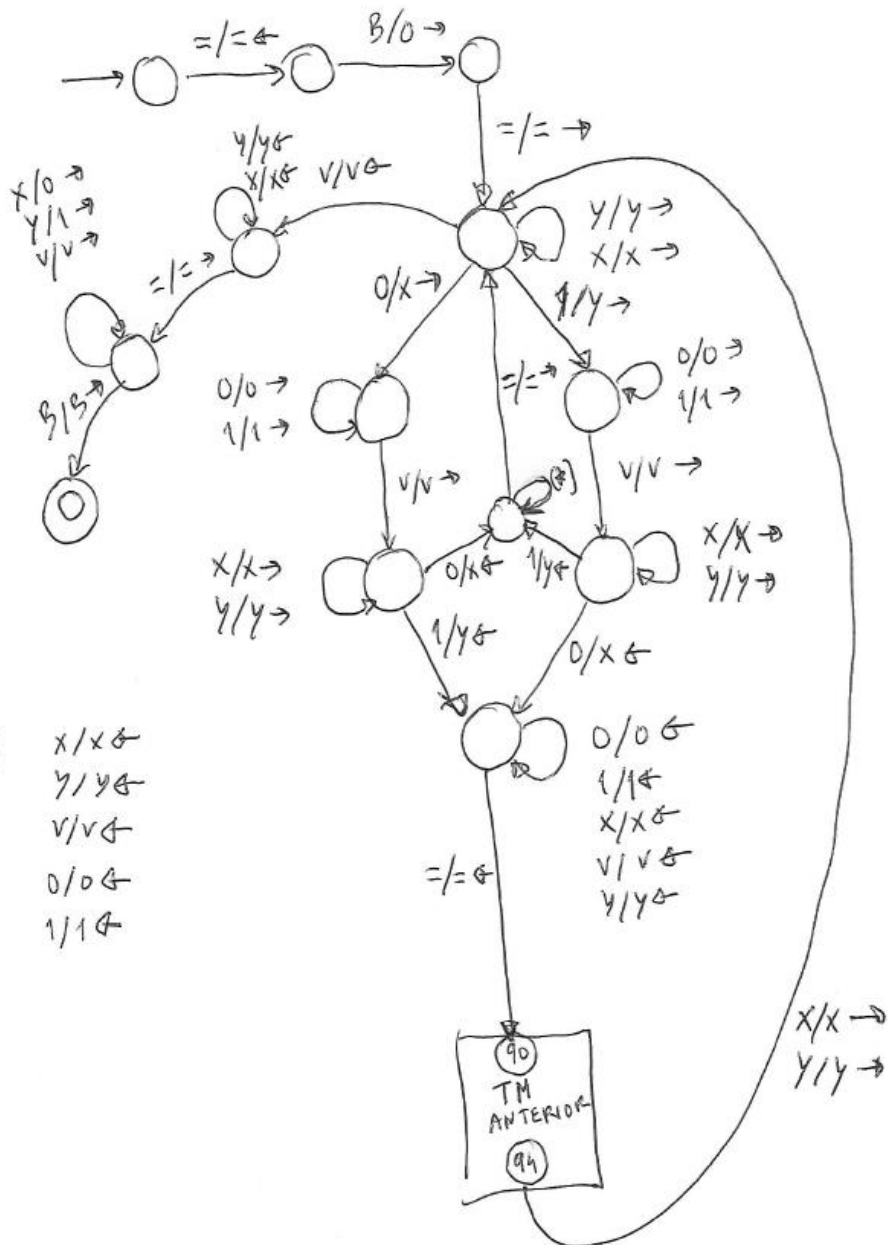 =/=←
B/0→
=/=→
y/y←
x/x←
v/v←
X/0→
Y/1→
v/v→
=/=→
B/B→
y/y→
x/x→
0/X→
1/Y→
0/0→
1/1→
0/0→
1/1→
=/=→
v/v→
v/v→
(*)
X/X→
Y/Y→
0/X←
1/Y←
X/X→
Y/Y→
1/Y←
0/X←
X/X←
Y/Y←
V/V←
0/0←
1/1←
0/0←
1/1←
X/X←
V/V←
Y/Y←
=/=←
X/X→
Y/Y→
TM
ANTERIOR